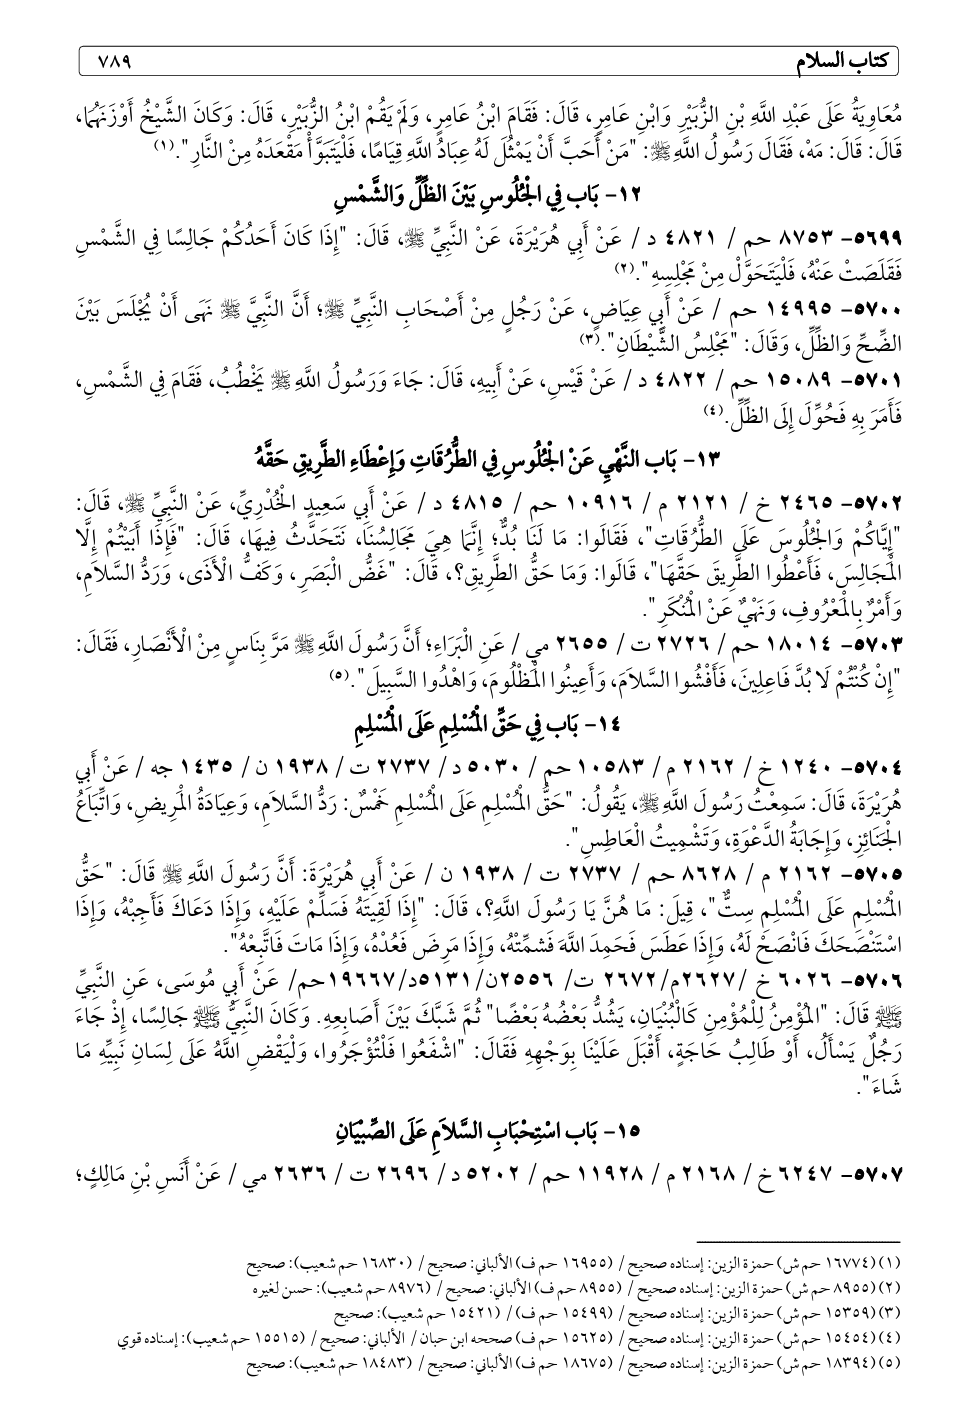 كتاب السلام ٧٨٩
مُعَاوِيَةُ عَلَى عَبْدِ اللَّهِ بْنِ الزُّبَيْرِ وَابْنِ عَامِرٍ، قَالَ: فَقَامَ ابْنُ عَامِرٍ، وَلَمْ يَقُمْ ابْنُ الزُّبَيْرِ، قَالَ: وَكَانَ الشَّيْخُ أَوْزَنَهُمَا،
قَالَ: قَالَ: مَهْ، فَقَالَ رَسُولُ اللَّهِ ﷺ: "مَنْ أَحَبَّ أَنْ يَمْثُلَ لَهُ عِبَادُ اللَّهِ قِيَامًا، فَلْيَتَبَوَّأْ مَقْعَدَهُ مِنْ النَّارِ".(١)
١٢- بَاب فِي الْجُلُوسِ بَيْنَ الظِّلِّ وَالشَّمْسِ
٥٦٩٩- ٨٧٥٣ حم / ٤٨٢١ د / عَنْ أَبِي هُرَيْرَةَ، عَنْ النَّبِيِّ ﷺ، قَالَ: "إِذَا كَانَ أَحَدُكُمْ جَالِسًا فِي الشَّمْسِ
فَقَلَصَتْ عَنْهُ، فَلْيَتَحَوَّلْ مِنْ مَجْلِسِهِ".(٢)
٥٧٠٠- ١٤٩٩٥ حم / عَنْ أَبِي عِيَاضٍ، عَنْ رَجُلٍ مِنْ أَصْحَابِ النَّبِيِّ ﷺ؛ أَنَّ النَّبِيَّ ﷺ نَهَى أَنْ يُجْلَسَ بَيْنَ
الضِّحِّ وَالظِّلِّ، وَقَالَ: "مَجْلِسُ الشَّيْطَانِ".(٣)
٥٧٠١- ١٥٠٨٩ حم / ٤٨٢٢ د / عَنْ قَيْسٍ، عَنْ أَبِيهِ، قَالَ: جَاءَ وَرَسُولُ اللَّهِ ﷺ يَخْطُبُ، فَقَامَ فِي الشَّمْسِ،
فَأَمَرَ بِهِ فَحُوِّلَ إِلَى الظِّلِّ.(٤)
١٣- بَاب النَّهْيِ عَنْ الْجُلُوسِ فِي الطُّرُقَاتِ وَإِعْطَاءِ الطَّرِيقِ حَقَّهُ
٥٧٠٢- ٢٤٦٥ خ / ٢١٢١ م / ١٠٩١٦ حم / ٤٨١٥ د / عَنْ أَبِي سَعِيدٍ الْخُدْرِيِّ، عَنْ النَّبِيِّ ﷺ، قَالَ:
"إِيَّاكُمْ وَالْجُلُوسَ عَلَى الطُّرُقَاتِ"، فَقَالُوا: مَا لَنَا بُدٌّ؛ إِنَّمَا هِيَ مَجَالِسُنَا، نَتَحَدَّثُ فِيهَا، قَالَ: "فَإِذَا أَبَيْتُمْ إِلَّا
الْمَجَالِسَ، فَأَعْطُوا الطَّرِيقَ حَقَّهَا"، قَالُوا: وَمَا حَقُّ الطَّرِيقِ؟، قَالَ: "غَضُّ الْبَصَرِ، وَكَفُّ الْأَذَى، وَرَدُّ السَّلَامِ،
وَأَمْرٌ بِالْمَعْرُوفِ، وَنَهْيٌ عَنْ الْمُنْكَرِ".
٥٧٠٣- ١٨٠١٤ حم / ٢٧٢٦ ت / ٢٦٥٥ مي / عَنِ الْبَرَاءِ؛ أَنَّ رَسُولَ اللَّهِ ﷺ مَرَّ بِنَاسٍ مِنْ الْأَنْصَارِ، فَقَالَ:
"إِنْ كُنْتُمْ لَا بُدَّ فَاعِلِينَ، فَأَفْشُوا السَّلَامَ، وَأَعِينُوا الْمَظْلُومَ، وَاهْدُوا السَّبِيلَ".(٥)
١٤- بَاب فِي حَقِّ الْمُسْلِمِ عَلَى الْمُسْلِمِ
٥٧٠٤- ١٢٤٠ خ / ٢١٦٢ م / ١٠٥٨٣ حم / ٥٠٣٠ د / ٢٧٣٧ ت / ١٩٣٨ ن / ١٤٣٥ جه / عَنْ أَبِي
هُرَيْرَةَ، قَالَ: سَمِعْتُ رَسُولَ اللَّهِ ﷺ، يَقُولُ: "حَقُّ الْمُسْلِمِ عَلَى الْمُسْلِمِ خَمْسٌ: رَدُّ السَّلَامِ، وَعِيَادَةُ الْمَرِيضِ، وَاتِّبَاعُ
الْجَنَائِزِ، وَإِجَابَةُ الدَّعْوَةِ، وَتَشْمِيتُ الْعَاطِسِ".
٥٧٠٥- ٢١٦٢ م / ٨٦٢٨ حم / ٢٧٣٧ ت / ١٩٣٨ ن / عَنْ أَبِي هُرَيْرَةَ: أَنَّ رَسُولَ اللَّهِ ﷺ قَالَ: "حَقُّ
الْمُسْلِمِ عَلَى الْمُسْلِمِ سِتٌّ"، قِيلَ: مَا هُنَّ يَا رَسُولَ اللَّهِ؟، قَالَ: "إِذَا لَقِيتَهُ فَسَلِّمْ عَلَيْهِ، وَإِذَا دَعَاكَ فَأَجِبْهُ، وَإِذَا
اسْتَنْصَحَكَ فَانْصَحْ لَهُ، وَإِذَا عَطَسَ فَحَمِدَ اللَّهَ فَشَمِّتْهُ، وَإِذَا مَرِضَ فَعُدْهُ، وَإِذَا مَاتَ فَاتَّبِعْهُ".
٥٧٠٦- ٦٠٢٦ خ /٢٦٢٧م/ ٢٦٧٢ ت/ ٢٥٥٦ن/٥١٣١د/١٩٦٦٧حم/ عَنْ أَبِي مُوسَى، عَنِ النَّبِيِّ
ﷺ قَالَ: "الْمُؤْمِنُ لِلْمُؤْمِنِ كَالْبُنْيَانِ، يَشُدُّ بَعْضُهُ بَعْضًا" ثُمَّ شَبَّكَ بَيْنَ أَصَابِعِهِ. وَكَانَ النَّبِيُّ ﷺ جَالِسًا، إِذْ جَاءَ
رَجُلٌ يَسْأَلُ، أَوْ طَالِبُ حَاجَةٍ، أَقْبَلَ عَلَيْنَا بِوَجْهِهِ فَقَالَ: "اشْفَعُوا فَلْتُؤْجَرُوا، وَلْيَقْضِ اللَّهُ عَلَى لِسَانِ نَبِيِّهِ مَا
شَاءَ".
١٥- بَاب اسْتِحْبَابِ السَّلَامِ عَلَى الصِّبْيَانِ
٥٧٠٧- ٦٢٤٧ خ / ٢١٦٨ م / ١١٩٢٨ حم / ٥٢٠٢ د/ ٢٦٩٦ ت / ٢٦٣٦ مي / عَنْ أَنَسِ بْنِ مَالِكٍ؛
(١) (١٦٧٧٤ حم ش) حمزة الزين: إسناده صحيح / (١٦٩٥٥ حم ف) الألباني: صحيح / (١٦٨٣٠ حم شعيب): صحيح
(٢) (٨٩٥٥ حم ش) حمزة الزين: إسناده صحيح / (٨٩٥٥ حم ف) الألباني: صحيح / (٨٩٧٦ حم شعيب): حسن لغيره
(٣) (١٥٣٥٩ حم ش) حمزة الزين: إسناده صحيح / (١٥٤٩٩ حم ف)/ (١٥٤٢١ حم شعيب): صحيح
(٤) (١٥٤٥٤ حم ش) حمزة الزين: إسناده صحيح / (١٥٦٢٥ حم ف) صححه ابن حبان / الألباني: صحيح / (١٥٥١٥ حم شعيب): إسناده قوي
(٥) (١٨٣٩٤ حم ش) حمزة الزين: إسناده صحيح / (١٨٦٧٥ حم ف) الألباني: صحيح / (١٨٤٨٣ حم شعيب): صحيح